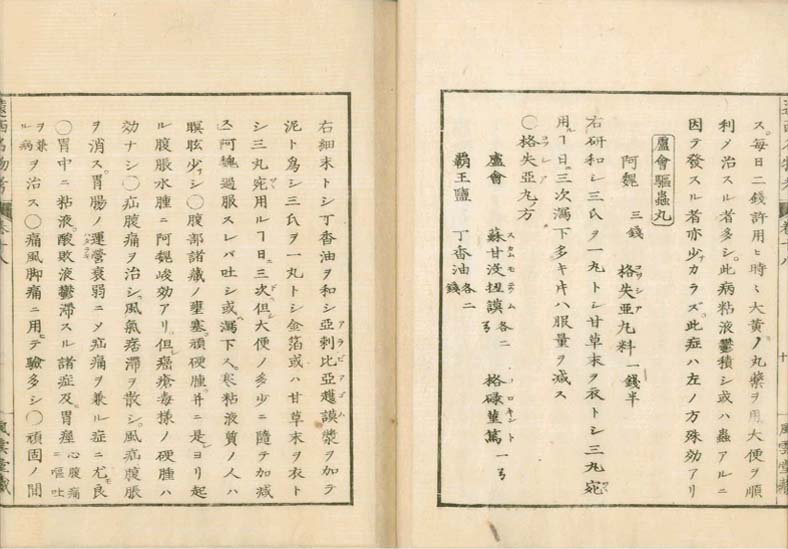 ス。毎日二錢許用ヒ時々大黄ノ丸藥ヲ用大便ヲ順
利メ治スル者多シ。此病粘液鬱積シ或ハ蟲アルニ
因テ發スル者亦少カラズ。此症ハ左ノ方殊効アリ
蘆會驅蟲丸
阿魏 三錢 格失亞丸料 一錢半
右研和シ三氏ヲ一丸トシ甘草末ヲ衣トシ三丸宛
用ルヿ日三次瀉下多キ片ハ服量ヲ減ス
○格失亞丸ノ方
蘆會 蘇甘没扭謨 各二ヲ 格碌菫篤 一ヲ
覇王鹽 丁香油 各二錢
右細末トシ丁香油ヲ和シ亞剌比亞護謨漿ヲ加テ
泥ト爲シ三氏ヲ一丸トシ金箔或ハ甘草末ヲ衣ト
シ三丸宛用ルヿ日三次。但シ大便ノ多少ニ隨テ加減
ス阿魏過服スレバ吐シ或ハ瀉下ス。寒粘液質ノ人ハ
瞑眩少シ○腹部諸藏ノ壅塞。頑硬腫。并ニ是ヨリ起
ル腹脹水腫ニ阿魏峻効アリ。但シ癌瘡毒様ノ硬腫ハ
効ナシ○疝腹痛ヲ治シ。風氣痞滯ヲ散シ。風疝腹脹
ヲ消ス。胃腸ノ運營衰弱ニメ疝痛ヲ兼ル症ニ尤モ良
○胃中ニ粘液。酸敗液鬱滯スル諸症及ビ胃痙 心腹痛ニ嘔吐
ヲ兼ル病ヲ治ス○痛風脚痛ニ用テ驗多シ○頑固ノ間
遠西名物考 卷十八
風雲堂藏
十
風雲堂藏